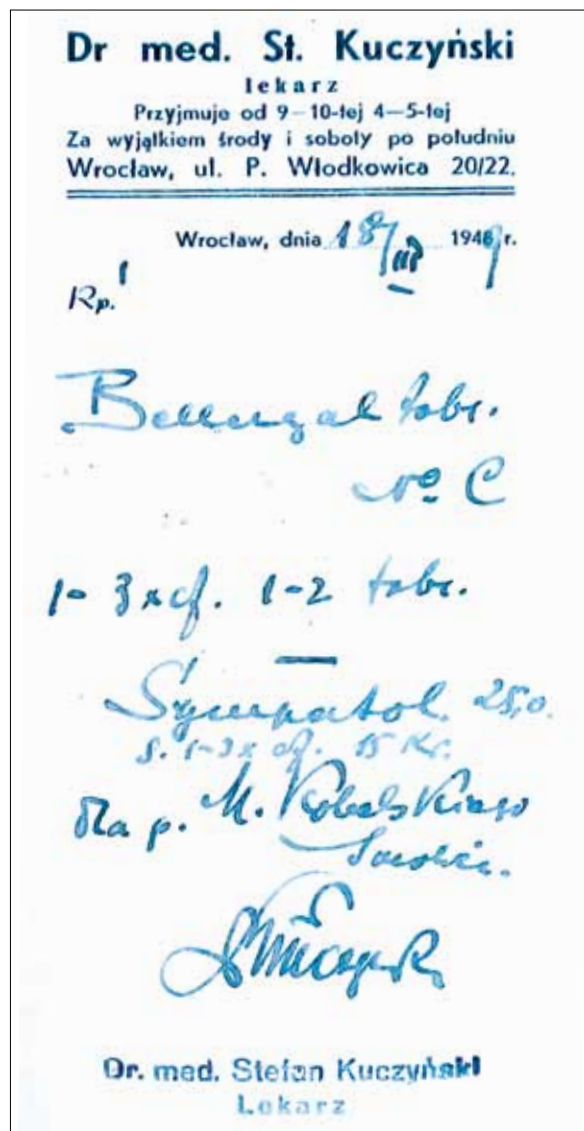 Dr med. St. Kuczyński
lekarz
Przyjmuje od 9–10-tej 4—5-tej
Za wyjątkiem środy i soboty po południu
Wrocław, ul. P. Włodkowica 20/22.
Wrocław, dnia 18/III 1949 r.
Rp.
Bellergal tabl.
No C
1-3 x dz. 1-2 tabl.
Sympatol. 25,0.
S. 1-3 x dz. 15 Kr.
Dla p. M. Kobelskiego
Dr. med. Stefan Kuczyński
Lekarz